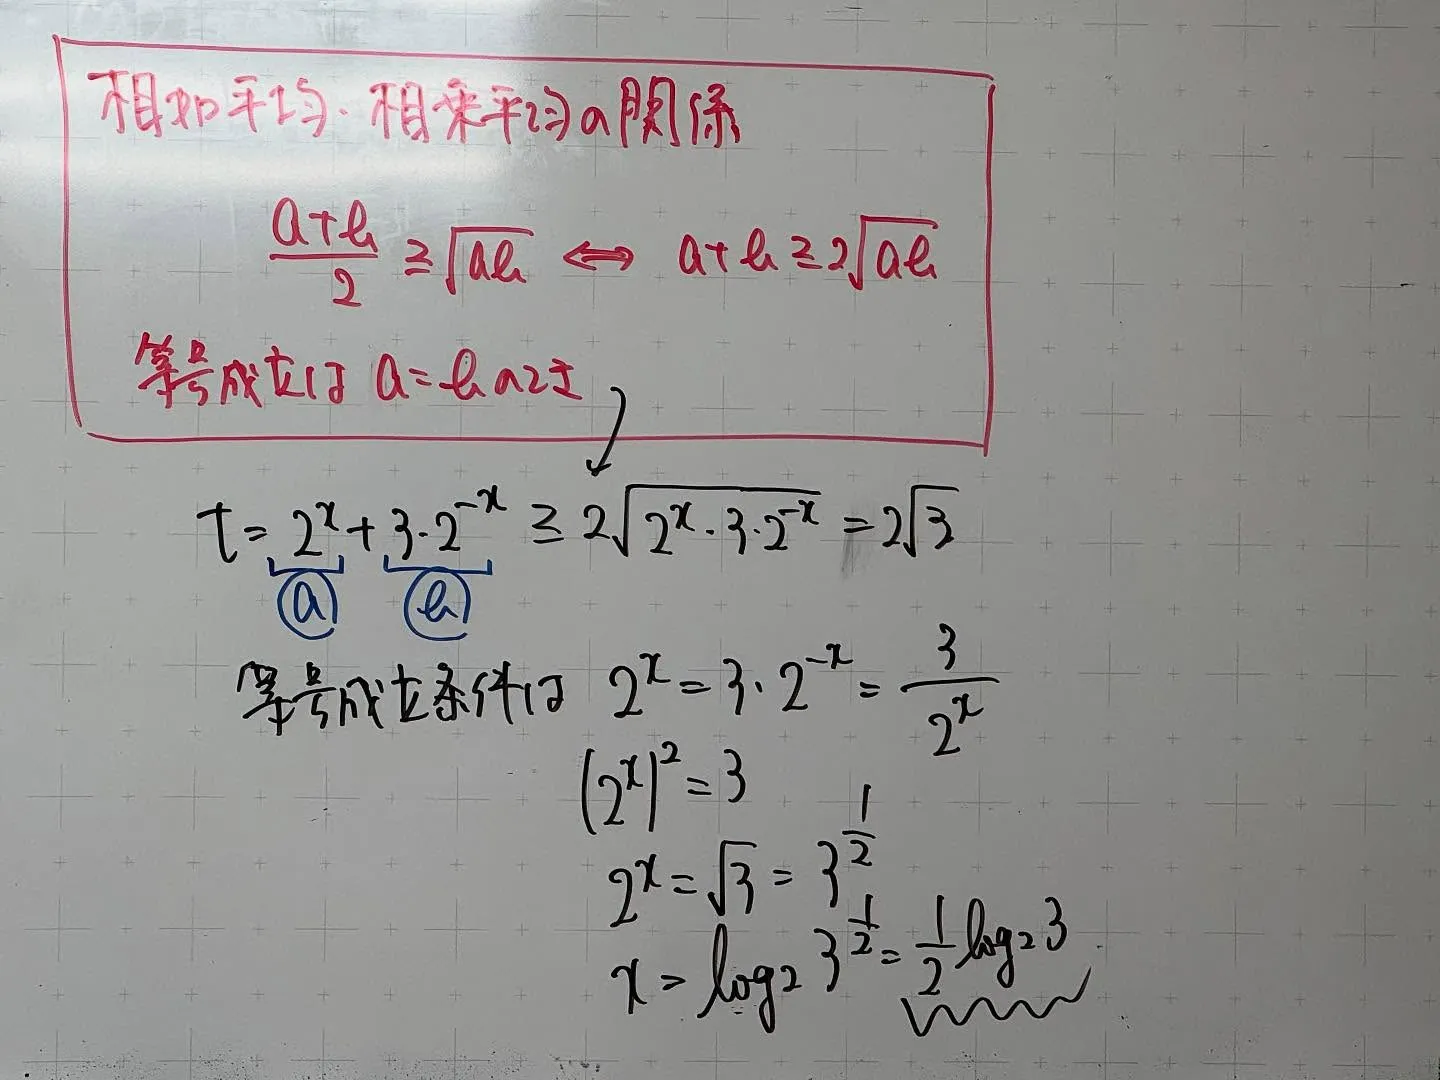 相加平均・相乗平均の関係
(a+b)/2 ≧ √(ab) ⇔ a+b ≧ 2√(ab)
等号成立は a=b のとき
t = 2^x + 3・2^(-x) ≧ 2√(2^x・3・2^(-x)) = 2√3
ⓐ ⓑ
等号成立条件は 2^x = 3・2^(-x) = 3/2^x
(2^x)^2 = 3
2^x = √3 = 3^(1/2)
x = log₂ 3^(1/2) = 1/2 log₂ 3